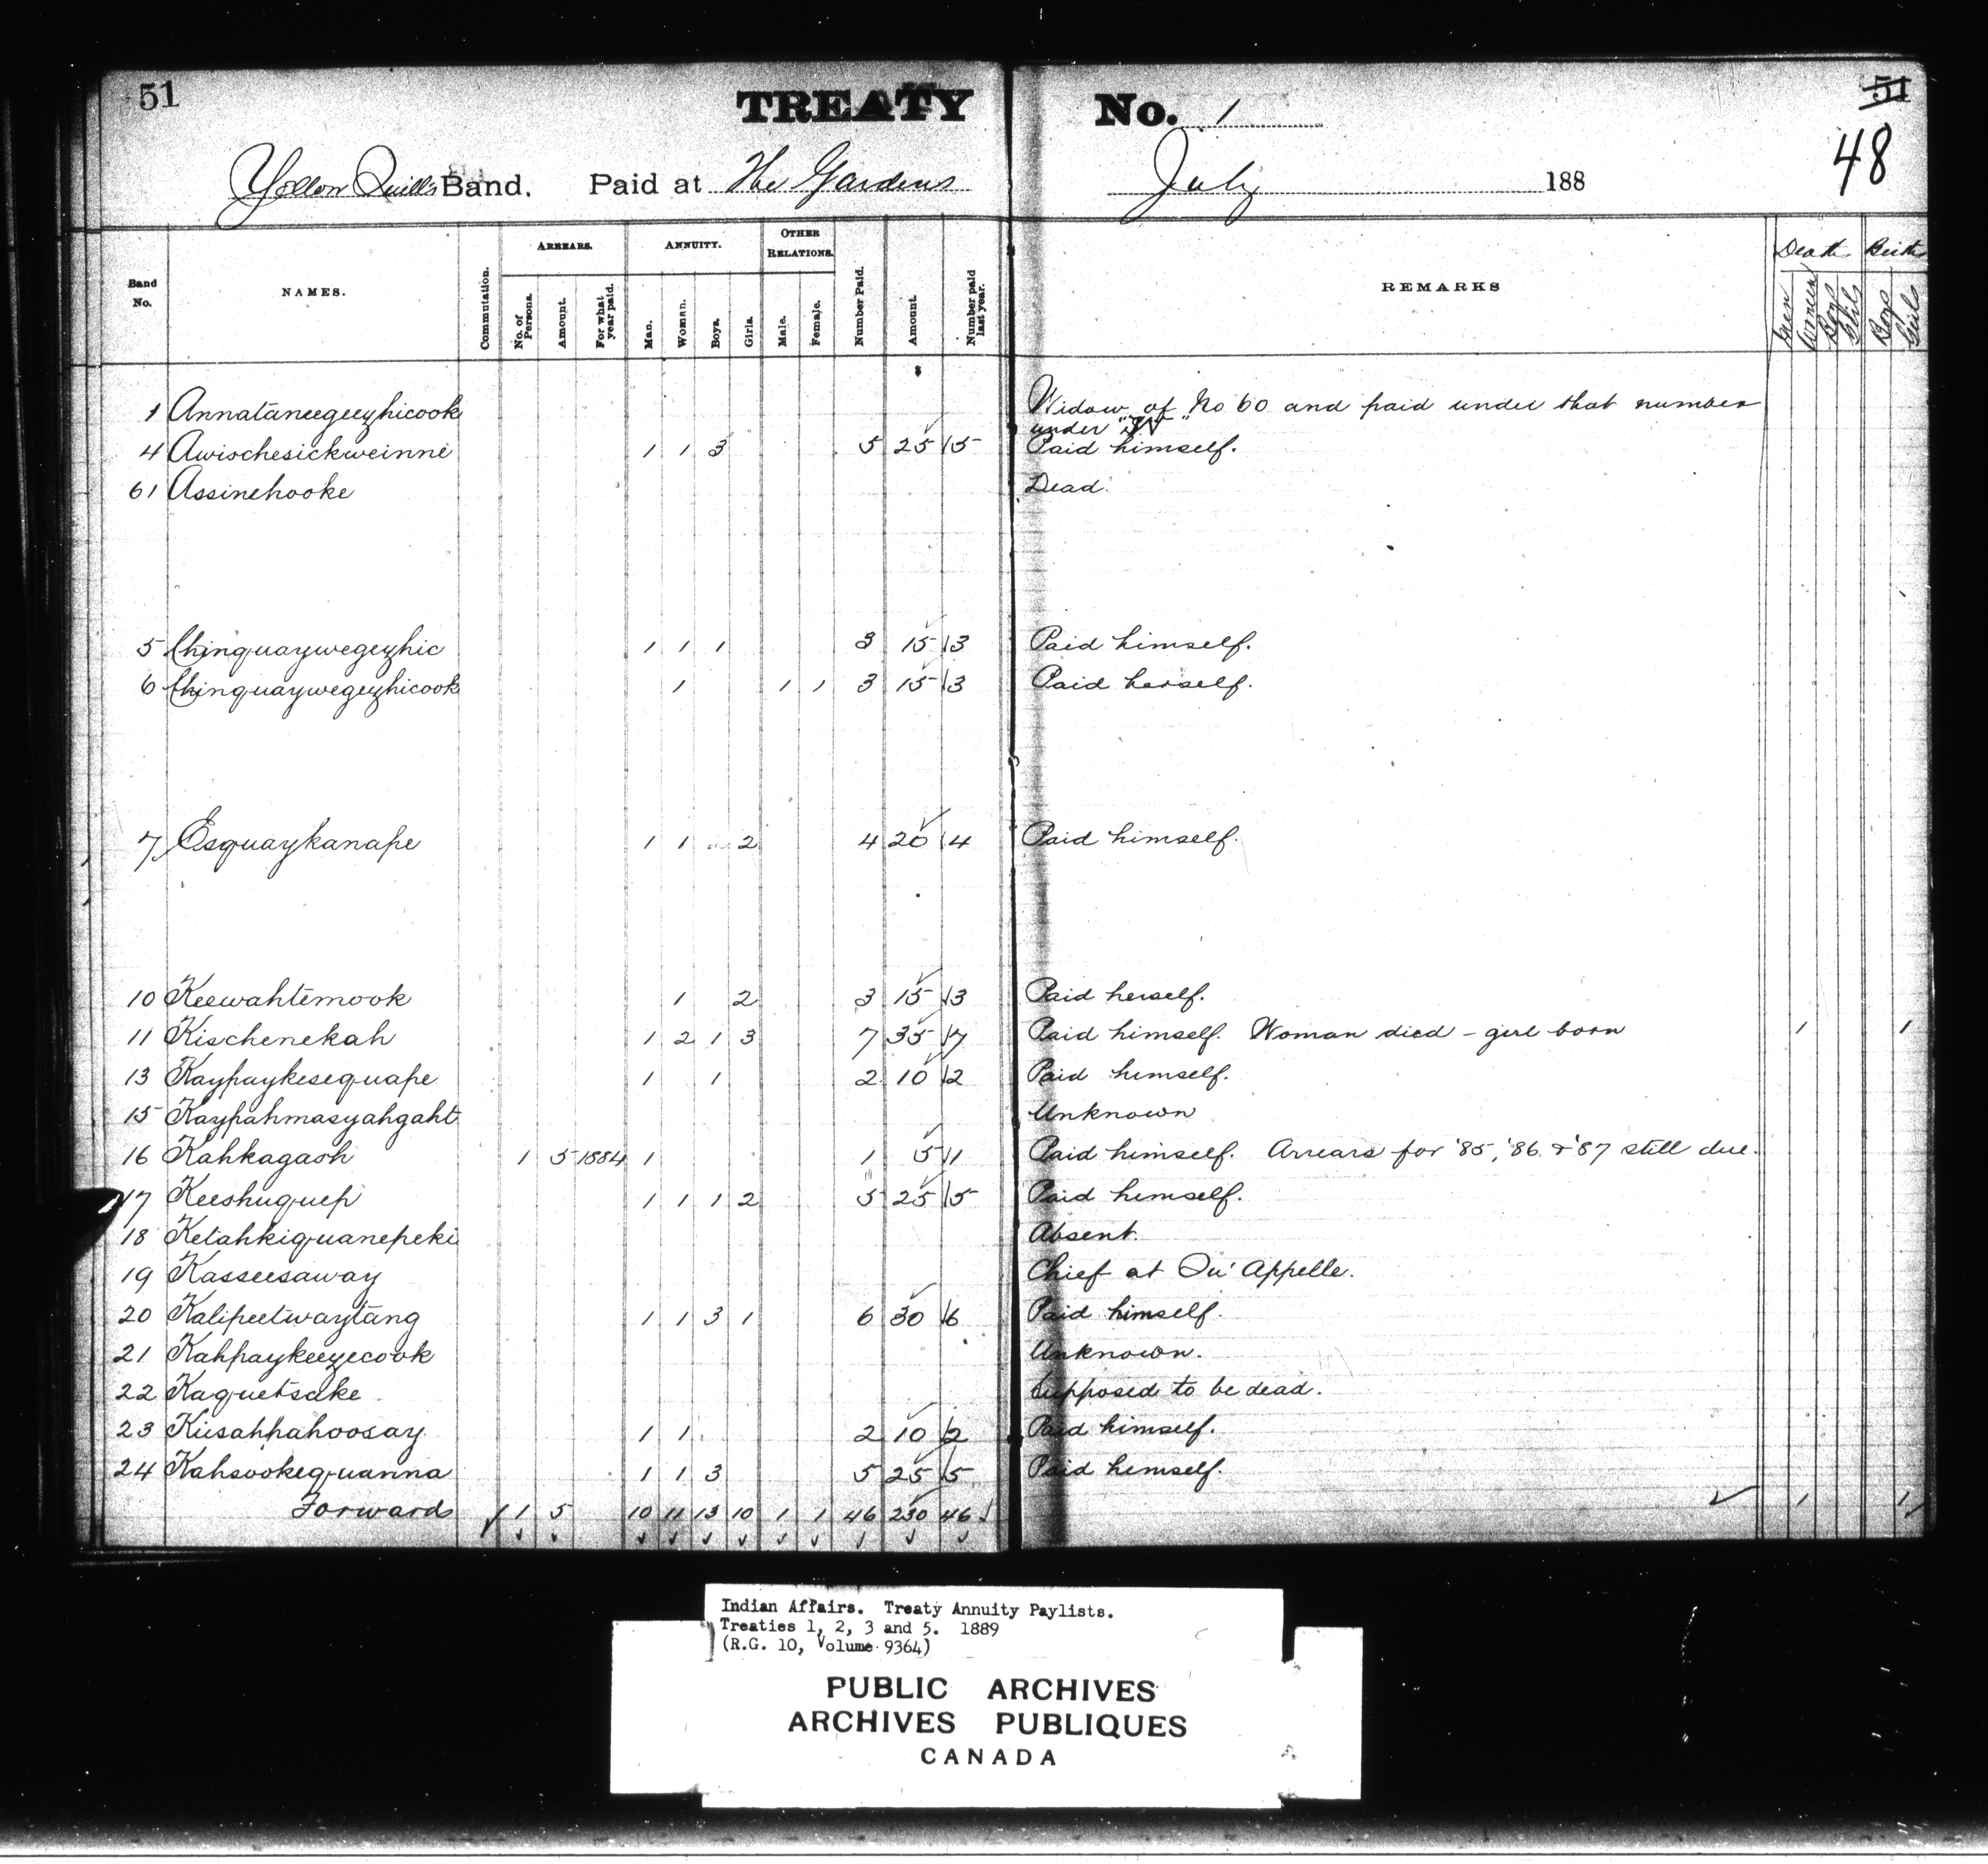 51 TREATY No. 1 51
48
Yellow Quills Band. Paid at The Gardens July 188
Band No. NAMES. Commutation. ARREARS. No. of Persons. Amount. For what year paid. ANNUITY. Man. Woman. Boys. Girls. OTHER RELATIONS. Male. Female. Number Paid. Amount. Number paid last year. REMARKS Death Births Men Women Boys Girls Boys Girls
$
1 Annataneegeezhicook Widow of No 60 and paid under that number
under "N"
4 Awischesickweinne 1 1 3 5 25 5 Paid himself.
61 Assinehooke Dead.
5 Chinquaywegezhic 1 1 1 3 15 3 Paid himself.
6 Chinquaywegezhicook 1 1 1 3 15 3 Paid herself.
7 Esquaykanape 1 1 2 4 20 4 Paid himself.
10 Keewahtemook 1 2 3 15 3 Paid herself.
11 Kischenekah 1 2 1 3 7 35 7 Paid himself. Woman died - girl born 1 1
13 Kaypaykesequape 1 1 2 10 2 Paid himself.
15 Kaypahmasyahgaht Unknown
16 Kahkagash 1 5 1884 1 1 5 1 Paid himself. Arrears for '85, '86 & '87 still due.
17 Keeshuquep 1 1 1 2 5 25 5 Paid himself.
18 Ketahkiquanepeki Absent.
19 Kasseesaway Chief at Qu' Appelle.
20 Kalipeetwaytang 1 1 3 1 6 30 6 Paid himself.
21 Kahpaykeezecook Unknown.
22 Kaquetsake Supposed to be dead.
23 Kiisahpahoosay 1 1 2 10 2 Paid himself.
24 Kahsookequanna 1 1 3 5 25 5 Paid himself.
Forwards 1 5 10 11 13 10 1 1 46 230 46 1 1
Indian Affairs. Treaty Annuity Paylists.
Treaties 1, 2, 3 and 5. 1889
(R.G. 10, Volume 9364)
PUBLIC ARCHIVES
ARCHIVES PUBLIQUES
CANADA